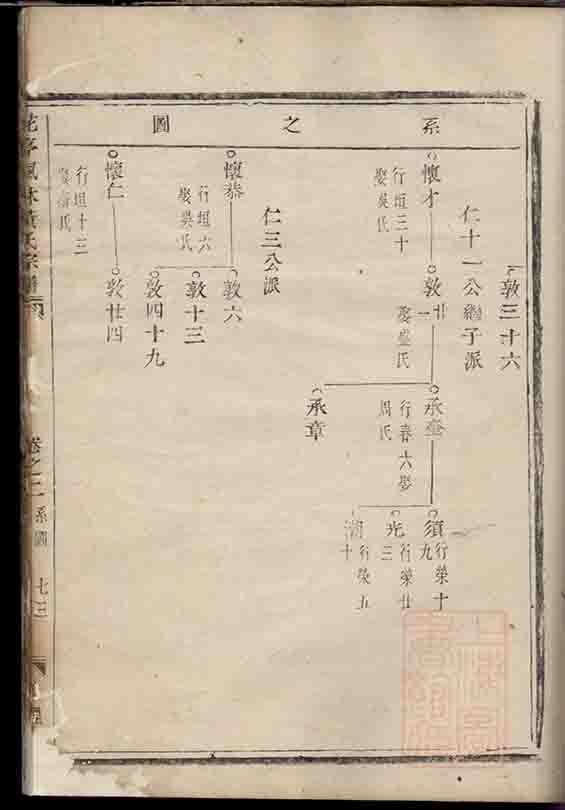 系之圖
敦三十六
仁十一公繼子派
懷才
行垣三十
娶吳氏
敦廿一
娶盛氏
承奎
行春六娶
周氏
承章
須
行榮十
九
光
行榮廿
三
行榮五
十
仁三公派
懷恭
行垣六
娶吳氏
敦六
敦十三
敦四十九
懷仁
行垣十三
娶
氏
敦廿四
氏宗譜
卷之二
系圖
七十三